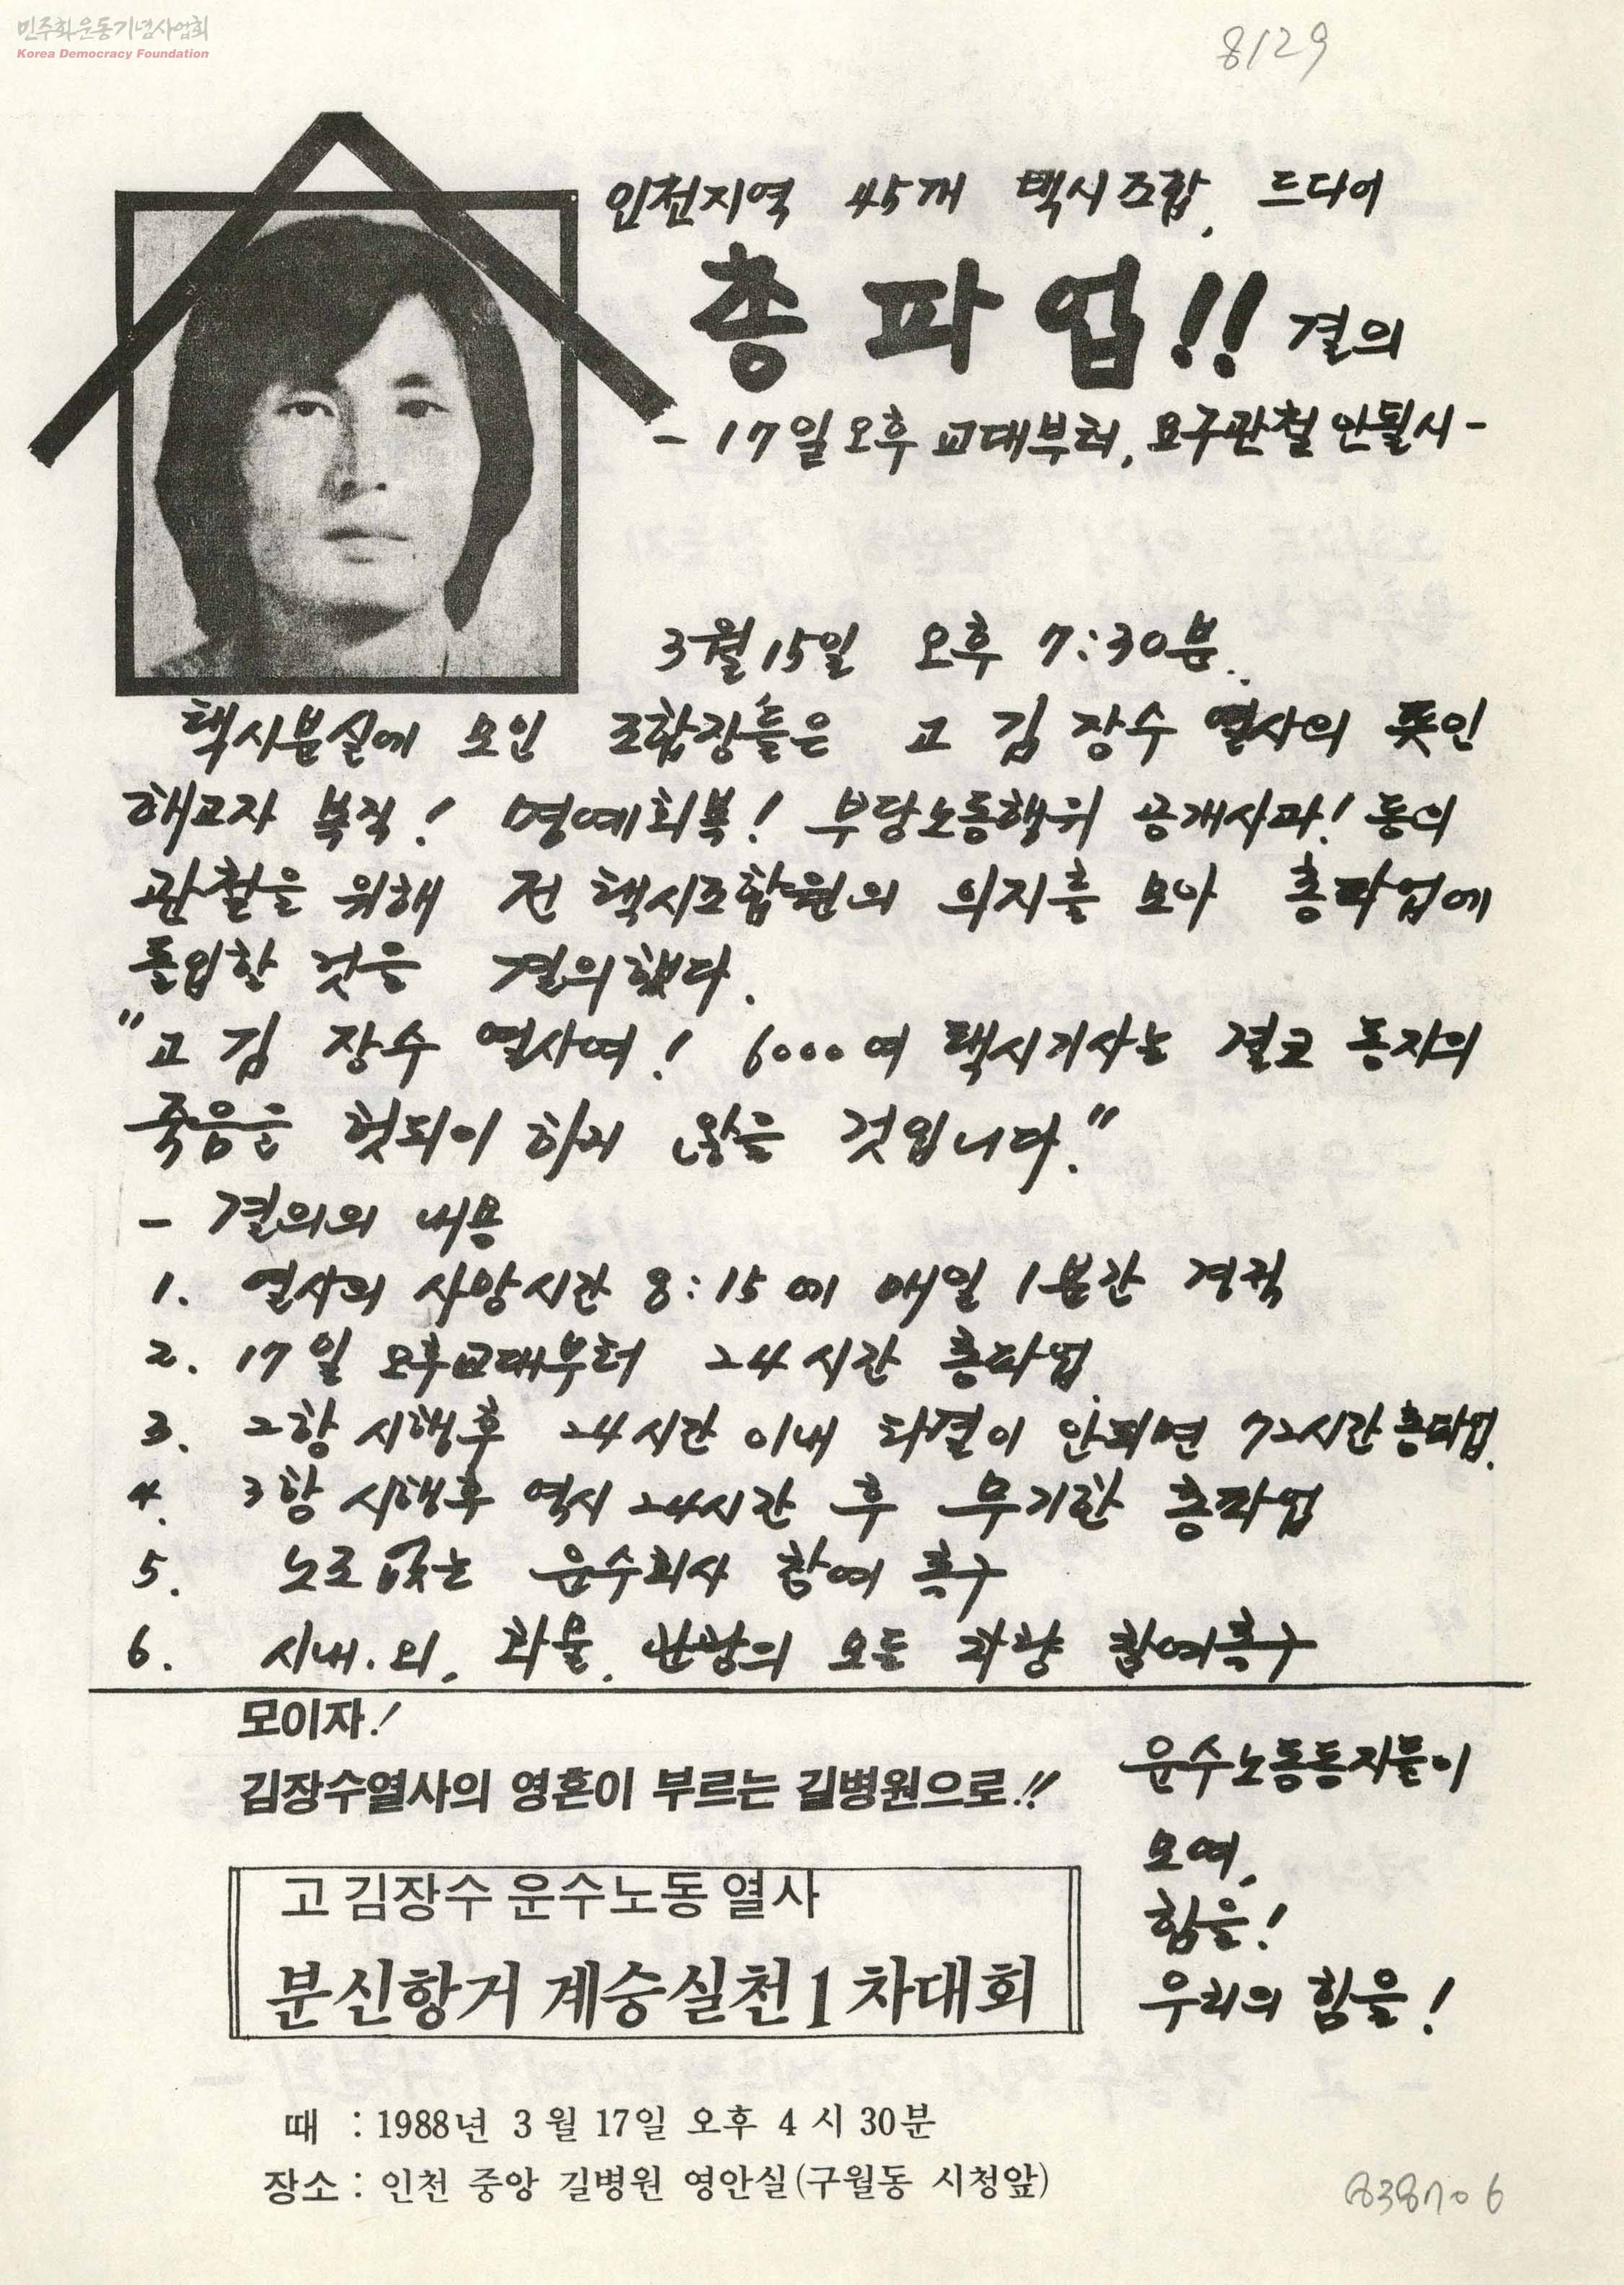 민주화운동기념사업회
Korea Democracy Foundation
8129
인천지역 45개 택시조합, 드디어
총파업!! 결의
- 17일 오후 교대부터, 요구관철 안될시 -
3월 15일 오후 7:30분..
택시분실에 모인 조합장들은 고 김 장수 열사의 뜻인
해고자 복직! 명예회복! 부당노동행위 공개사과! 등의
관철을 위해 전 택시조합원의 의지를 모아 총파업에
돌입할 것을 결의했다.
"고 김 장수 열사여! 6000여 택시기사는 결코 동지의
죽음을 헛되이 하지 않을 것입니다."
- 결의의 내용
1. 열사의 사망시간 8:15에 매일 1분간 경적
2. 17일 오후교대부터 24시간 총파업.
3. 2항 시행후 24시간 이내 타결이 안되면 72시간 총파업.
4. 3항 시행후 역시 24시간 후 무기한 총파업
5. 노조없는 운수회사 참여 촉구
6. 시내.외, 화물, 난방의 모든 차량 참여촉구
모이자!
김장수열사의 영혼이 부르는 길병원으로!!
고 김장수 운수노동 열사
분신항거 계승실천 1차대회
운수노동동지들이
모여,
힘을!
우리의 힘을!
때 : 1988년 3월 17일 오후 4시 30분
장소 : 인천 중앙 길병원 영안실(구월동 시청앞)